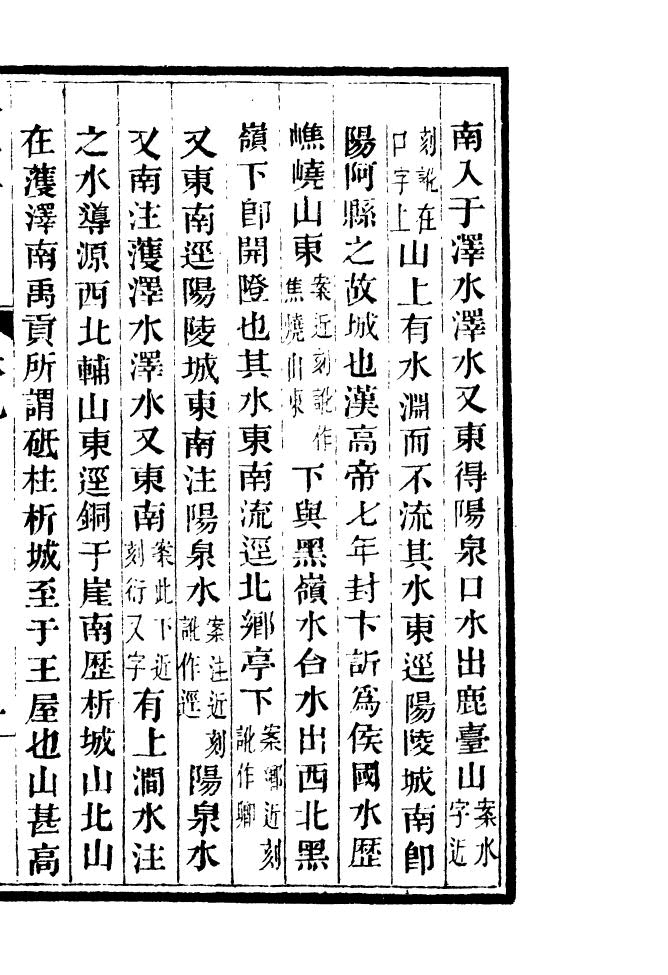 南入于澤水澤水又東得陽泉口水出鹿臺山案水字近
刻訛在口字上山上有水淵而不流其水東逕陽陵城南卽
陽阿縣之故城也漢高帝七年封卞訢爲侯國水歷
嶕嶢山東案近刻訛作焦燒山東下與黑嶺水合水出西北黑
嶺下卽開隥也其水東南流逕北鄕亭下案鄕近刻訛作卿
又東南逕陽陵城東南注陽泉水案注近刻訛作逕陽泉水
又南注濩澤水澤水又東南案此下近刻衍又字有上澗水注
之水導源西北輔山東逕銅于崖南歷析城山北山
在濩澤南禹貢所謂砥柱析城至于王屋也山甚高